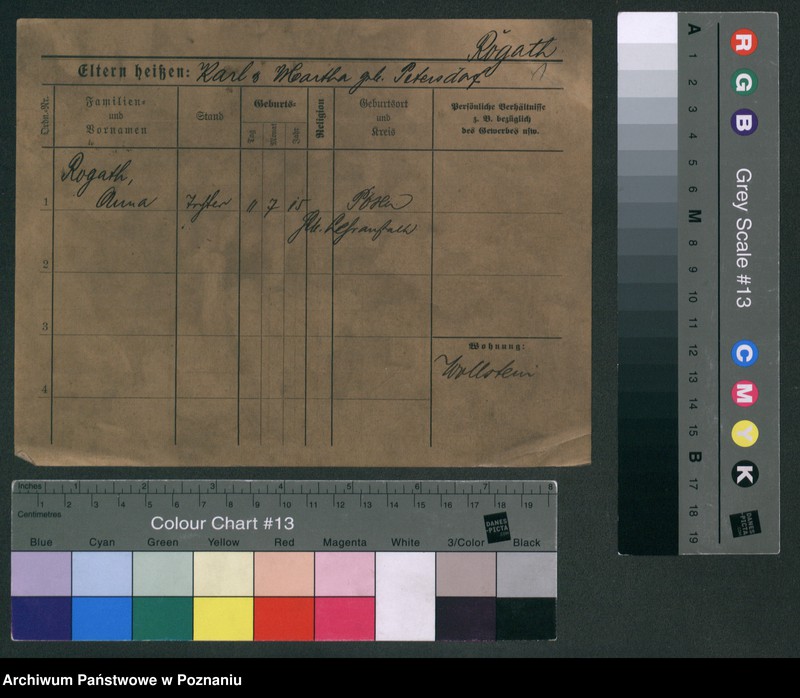 Rogath
Eltern heißen: Karl & Martha geb. Petersdorf
Ordn.-Nr.
Familien- und Vornamen
Stand
Geburts-
Tag
Monat
Jahr
Religion
Geburtsort und Kreis
Persönliche Verhältnisse z. B. bezüglich des Gewerbes usw.
Rogath,
1 Anna Tochter 11 7 15 Posen
2
3
4
Wohnung:
Wollstein
Inches 1 2 3 4 5 6 7 8
Centimetres 1 2 3 4 5 6 7 8 9 10 11 12 13 14 15 16 17 18 19
Colour Chart #13
DANES-PICTA.COM
Blue Cyan Green Yellow Red Magenta White 3/Color Black
A 1 2 3 4 5 6 M 8 9 10 11 12 13 14 15 B 17 18 19
R G B Grey Scale #13 C M Y K
DANES-PICTA.COM
Archiwum Państwowe w Poznaniu